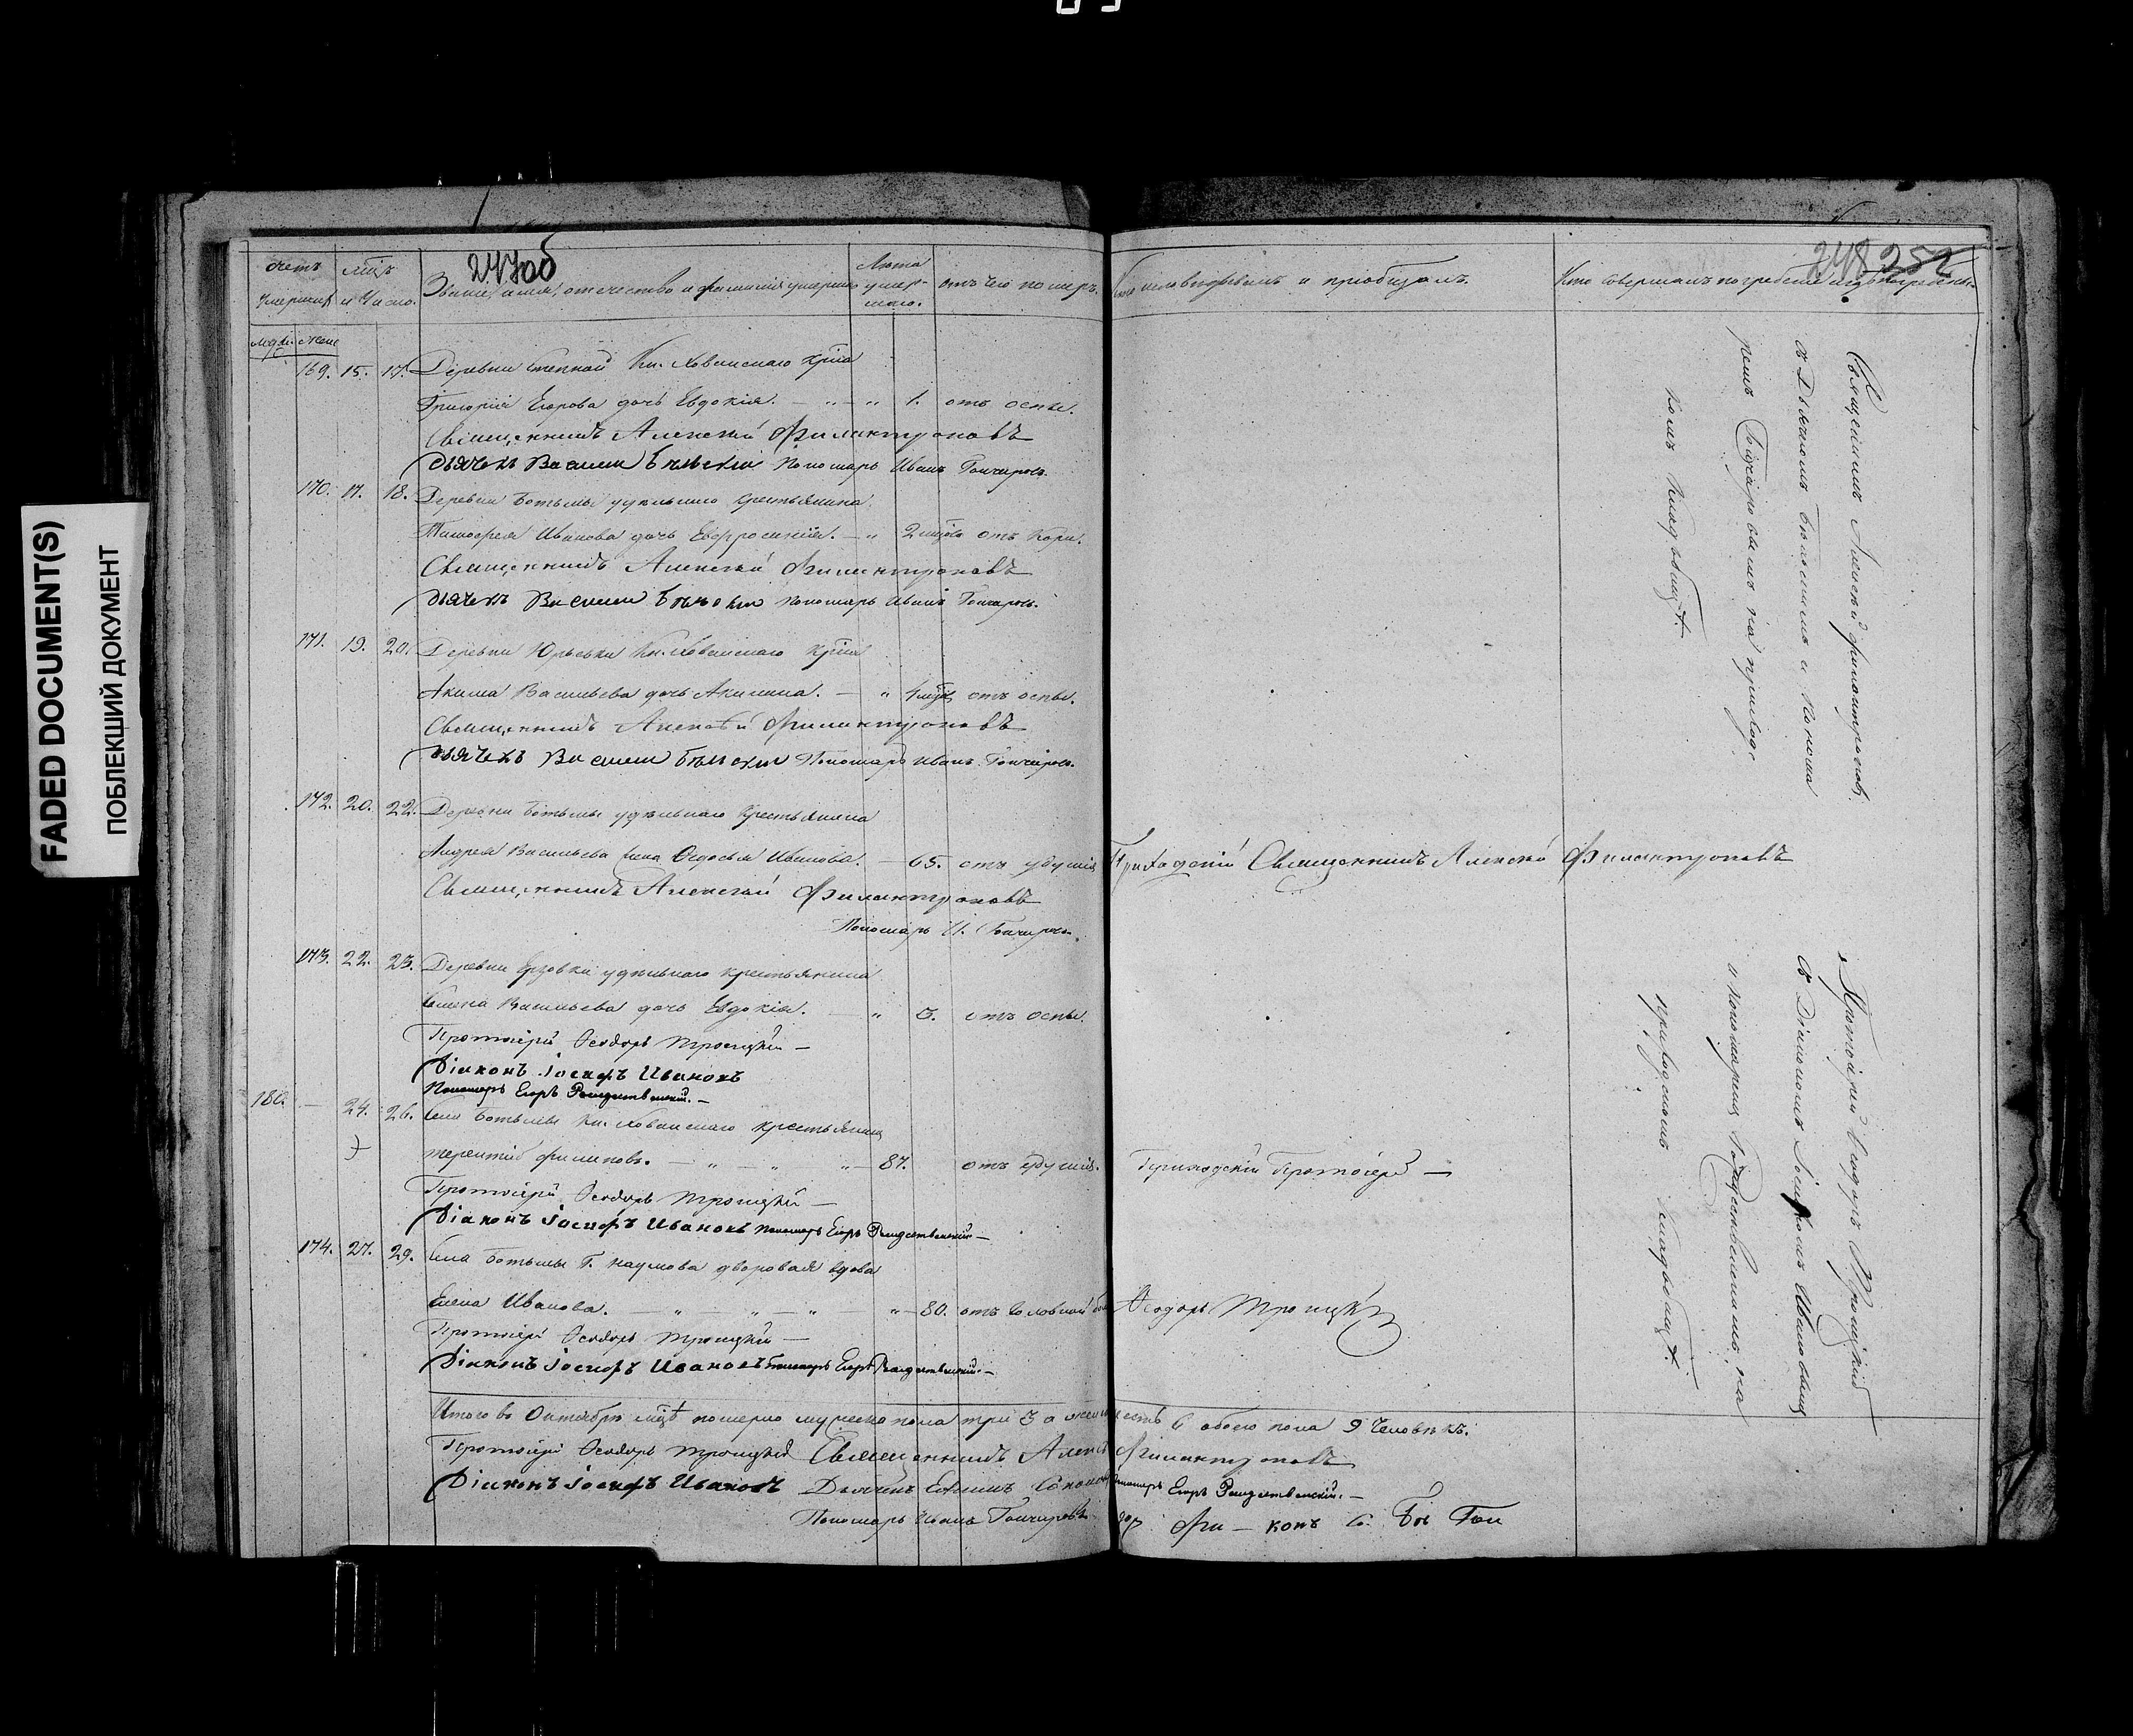 FADED DOCUMENT(S)
ПОБЛЕКШИЙ ДОКУМЕНТ
247об
248 252
Счетъ умершихъ
Мѣцъ и Число.
Званіе, имя, отечество и фамилія умершаго
Лѣта умер-шаго.
отъ чего померъ.
Кто исповѣдывалъ и пріобщалъ.
Кто совершалъ погребеніе и гдѣ погребены.
169. 15. 17. Деревни Степной Кн. Хованскаго крна
Григорія Егорова дочь Евдокія. 1. отъ оспы.
Священникъ Алексѣй Филантроповъ
Дьячекъ Василій Бѣльскій Пономарь Иванъ Гончаровъ.
170. 17. 18. Деревни Ботьмы удѣльнаго крестьянина
Тимофея Иванова дочь Евфросинія. 2 мцовъ отъ Кори.
Священникъ Алексѣй Филантроповъ
Дьячекъ Василій Бѣльскій Пономарь Иванъ Гончаровъ.
171. 19. 20. Деревни Юрьевки Кн. Хованскаго крна
Акима Васильева дочь Акилина. отъ оспы.
Священникъ Алексѣй Филантроповъ
Дьячекъ Василій Бѣльскій Пономарь Иванъ Гончаровъ.
172. 20. 22. Деревни Ботьмы удѣльнаго крестьянина
Андрея Васильева жена Ѳедосья Иванова. 65. отъ удушія Приходскій Священникъ Алексѣй Филантроповъ
Священникъ Алексѣй Филантроповъ
Пономарь И. Гончаровъ.
173. 22. 23. Деревни Ерзовки удѣльнаго крестьянина
Васильева дочь Евдокія. 3. отъ оспы.
Протоіерей Ѳеодоръ Троицкій
Діаконъ Іосифъ Ивановъ
Пономарь Егоръ Рождественскій.
180. 24. 26. Села Ботьмы Кн. Хованскаго крестьянинъ
Терентій Филиповъ. 87. отъ удушія. Приходскій Протоіерей
Протоіерей Ѳеодоръ Троицкій
Діаконъ Іосифъ Ивановъ Пономарь Егоръ Рождественскій
174. 27. 29. Села Ботьмы Г. Наумова дворовая вдова
Елена Иванова. 80. отъ головной Ѳеодоръ Троицкій
Протоіерей Ѳеодоръ Троицкій
Діаконъ Іосифъ Ивановъ Пономарь Егоръ Рождественскій.
Итого въ Октябрѣ мцѣ померло мужеска пола три 3 а шесть 6 обоего пола 9 Человѣкъ.
Протоіерей Ѳеодоръ Троицкій Священникъ Алексѣй Филантроповъ
Діаконъ Іосифъ Ивановъ Дьячекъ Пономарь Егоръ Рождественскій.
Пономарь Иванъ Гончаровъ
Священникъ Алексѣй Филантроповъ
съ Дьячкомъ Бѣльскимъ и Понома
ремъ Гончаровымъ на приход.
комъ кладбищѣ.
Протоіерей Ѳеодоръ Троицкій
съ Діакономъ Іосифомъ Ивановымъ
и пономаремъ Рождественскимъ, на
приходскомъ кладбищѣ.